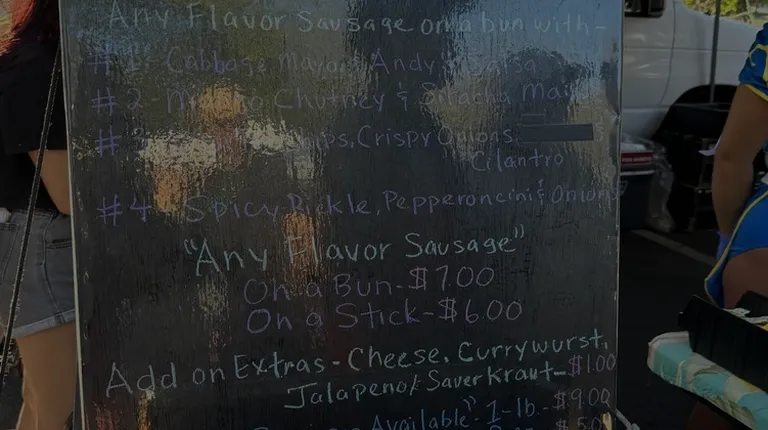 Any Flavor Sausage on a bun with-
#1 Cabbage Mayo & Andy's Salsa
#2 Mango Chutney & Siracha Mayo
#3 Chips, Crispy Onions
Cilantro
#4 Spicy Pickle, Pepperoncini & Onions
"Any Flavor Sausage"
On a Bun-$7.00
On a Stick-$6.00
Add on Extras-Cheese, Currywurst,
Jalapeno/Sauerkraut-$1.00
Available"-1-lb.-$9.00
$5.00